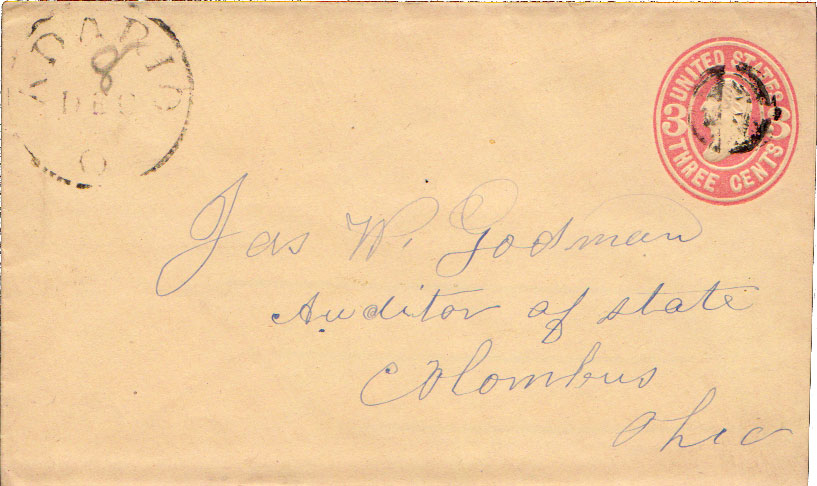 ADARIO
8
DEC
O
UNITED STATES
3 3
THREE CENTS
Jas W. Godman
Auditor of state
Colombus
Ohio